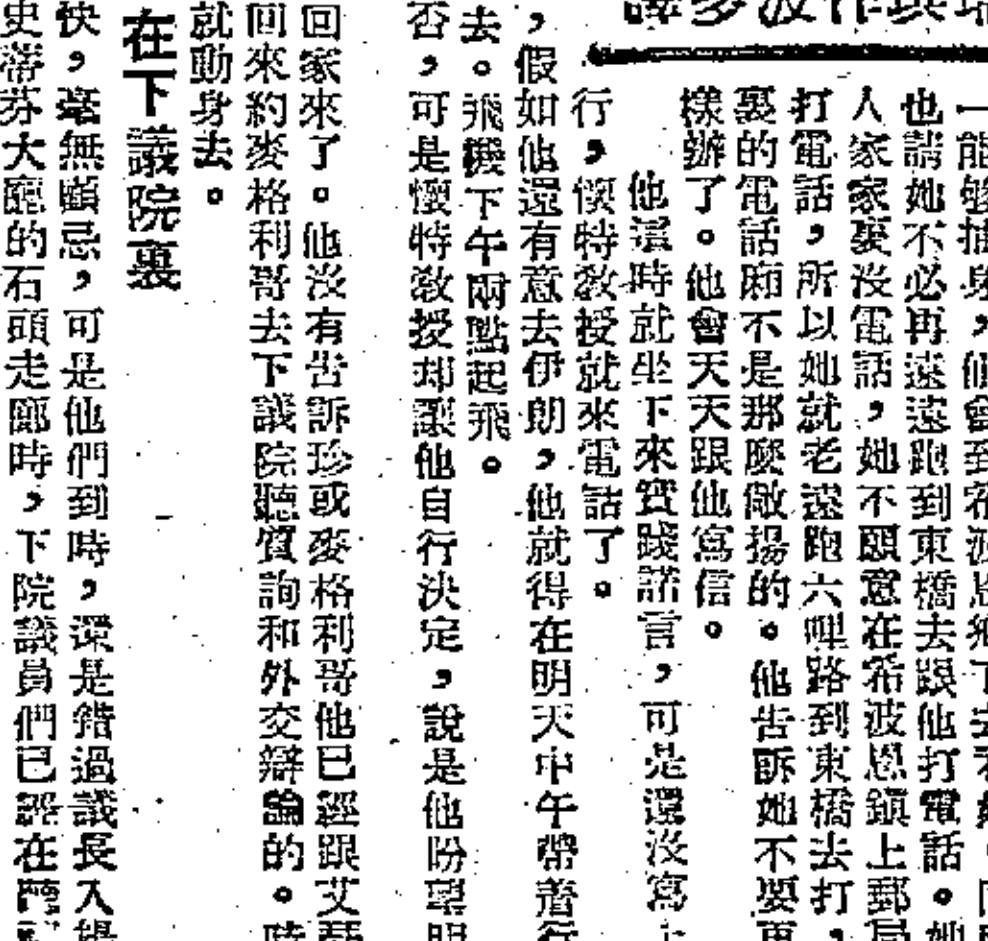 譯多波作琪瑞
一能够抽身，他會到希波恩鄉下去看她
也請她不必再遠遠跑到東橋去跟他打電話。她
人家家裏没電話，她不願意在希波恩鎮上郵局
打電話，所以她就老遠跑六哩路到東橋去打，
裏的電話廂不是那麼敞揚的。他告訴她不要再
樣辦了。他會天天跟他寫信。
他這時就坐下來實踐諾言，可是還没寫上
行，懷特教授就來電話了。
，假如他還有意去伊朗，他就得在明天中午帶着行
去。飛機下午兩點起飛。
否，可是懷特教授却讓他自行決定，說是他盼望明
回家來了。他没有告訴珍或麥格利哥他已經跟艾瑟
回來約麥格利哥去下議院聽質詢和外交辯論的。時
就動身去。
在下議院裏
快，毫無顧忌，可是他們到時，還是錯過議長入場
史蒂芬大廳的石頭走廊時，下院議員們已經在